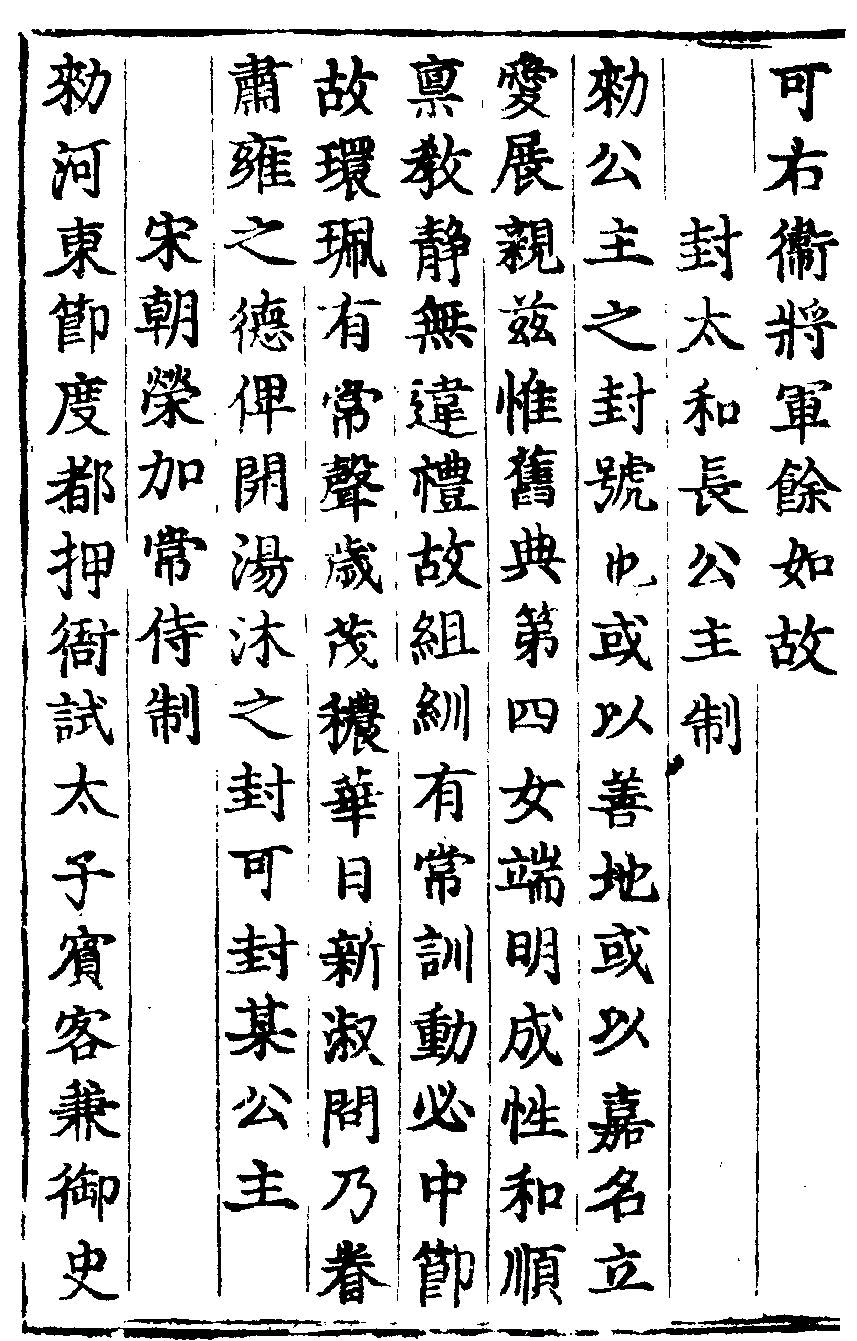 可右衞將軍餘如故
封太和長公主制
勑公主之封號也或以善地或以嘉名立
愛展親兹惟舊典第四女端明成性和順
禀敎静無違禮故組紃有常訓動必中節
故環珮有常聲歳茂穠華日新淑問乃眷
肅雍之德俾開湯沐之封可封某公主
宋朝榮加常侍制
勑河東節度都押衙試太子賓客兼御史